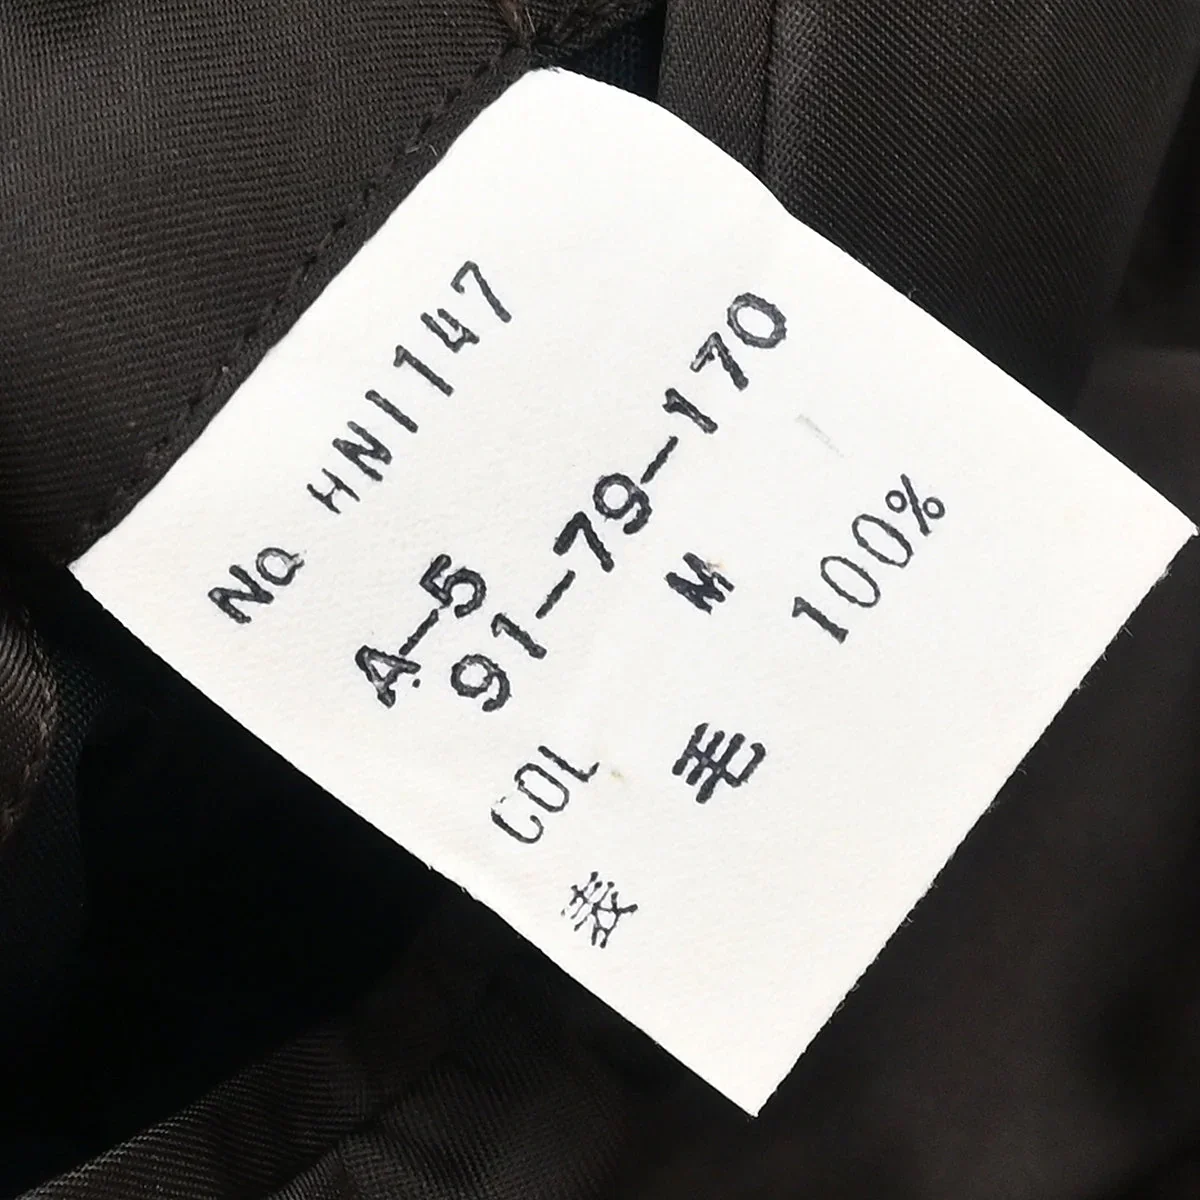 No HN1147
A-5
91-79-170
COL M
表 毛 100%